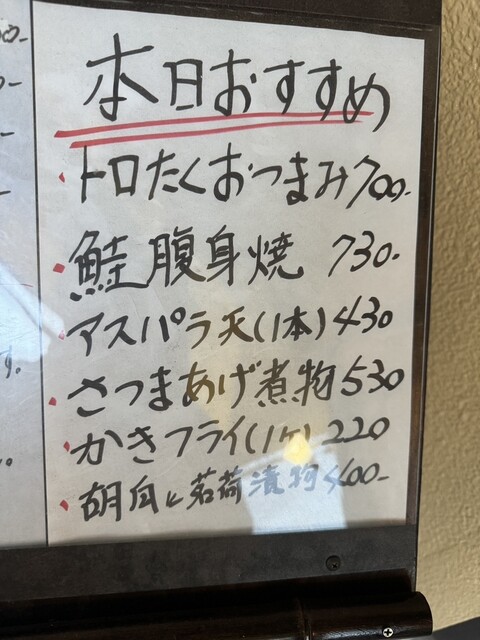 本日おすすめ
トロたくおつまみ700-
鮭腹身焼 730-
アスパラ天(1本)430
さつまあげ煮物530
かきフライ(1ヶ)220
茗荷漬物400-
す。